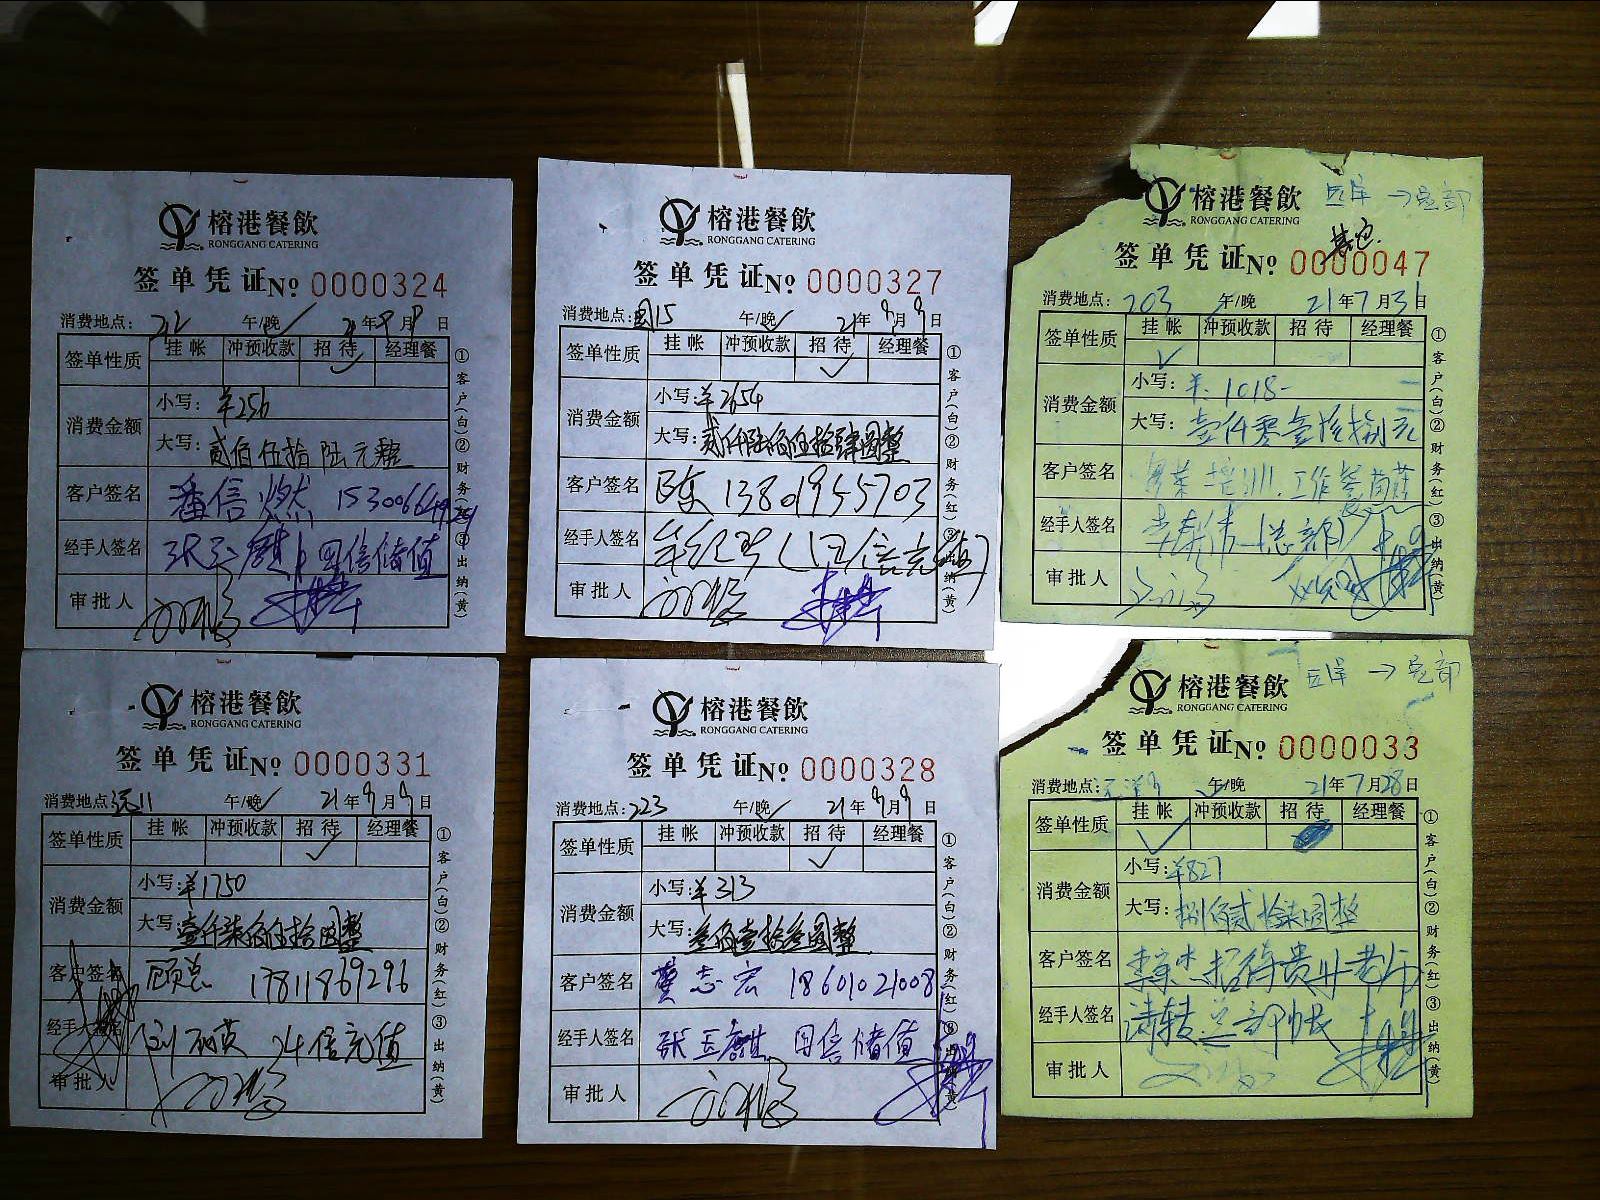 榕港餐飲
RONGGANG CATERING
签单凭证 No 0000324
消费地点: 212 午/晚 21年9月9日
签单性质 挂帐 冲预收款 招待 经理餐
消费金额 小写: ¥256
大写: 贰佰伍拾陆元整
客户签名 潘信燃
经手人签名 四倍储值
审批人
①客户(白)②财务(红)③出纳(黄)
榕港餐飲
RONGGANG CATERING
签单凭证 No 0000327
消费地点: 园15 午/晚 21年9月9日
签单性质 挂帐 冲预收款 招待 经理餐
消费金额 小写: ¥2654
大写: 贰仟陆佰伍拾肆圆整
客户签名 陈 13801955703
经手人签名
审批人
①客户(白)②财务(红)③出纳(黄)
→总部
榕港餐飲
RONGGANG CATERING
签单凭证 No 0000047
消费地点: 203 午/晚 21年7月31日
签单性质 挂帐 冲预收款 招待 经理餐
消费金额 小写: ¥:1018-
大写: 壹仟零壹拾捌元
客户签名
经手人签名
审批人
①客户(白)②财务(红)③出纳(黄)
榕港餐飲
RONGGANG CATERING
签单凭证 No 0000331
消费地点: 远11 午/晚 21年9月9日
签单性质 挂帐 冲预收款 招待 经理餐
消费金额 小写: ¥1750
大写: 壹仟柒佰伍拾圆整
客户签名 顾总 17811869296
经手人签名 4倍充值
审批人
①客户(白)②财务(红)③出纳(黄)
榕港餐飲
RONGGANG CATERING
签单凭证 No 0000328
消费地点: 223 午/晚 21年9月9日
签单性质 挂帐 冲预收款 招待 经理餐
消费金额 小写: ¥313
大写: 叁佰壹拾叁圆整
客户签名 黄志宏 18601021008
经手人签名 张玉麒 四倍储值
审批人
①客户(白)②财务(红)③出纳(黄)
→总部
榕港餐飲
RONGGANG CATERING
签单凭证 No 0000033
消费地点: 午/晚 21年7月28日
签单性质 挂帐 冲预收款 招待 经理餐
消费金额 小写: ¥827
大写: 捌佰贰拾柒圆整
客户签名
经手人签名
审批人
①客户(白)②财务(红)③出纳(黄)